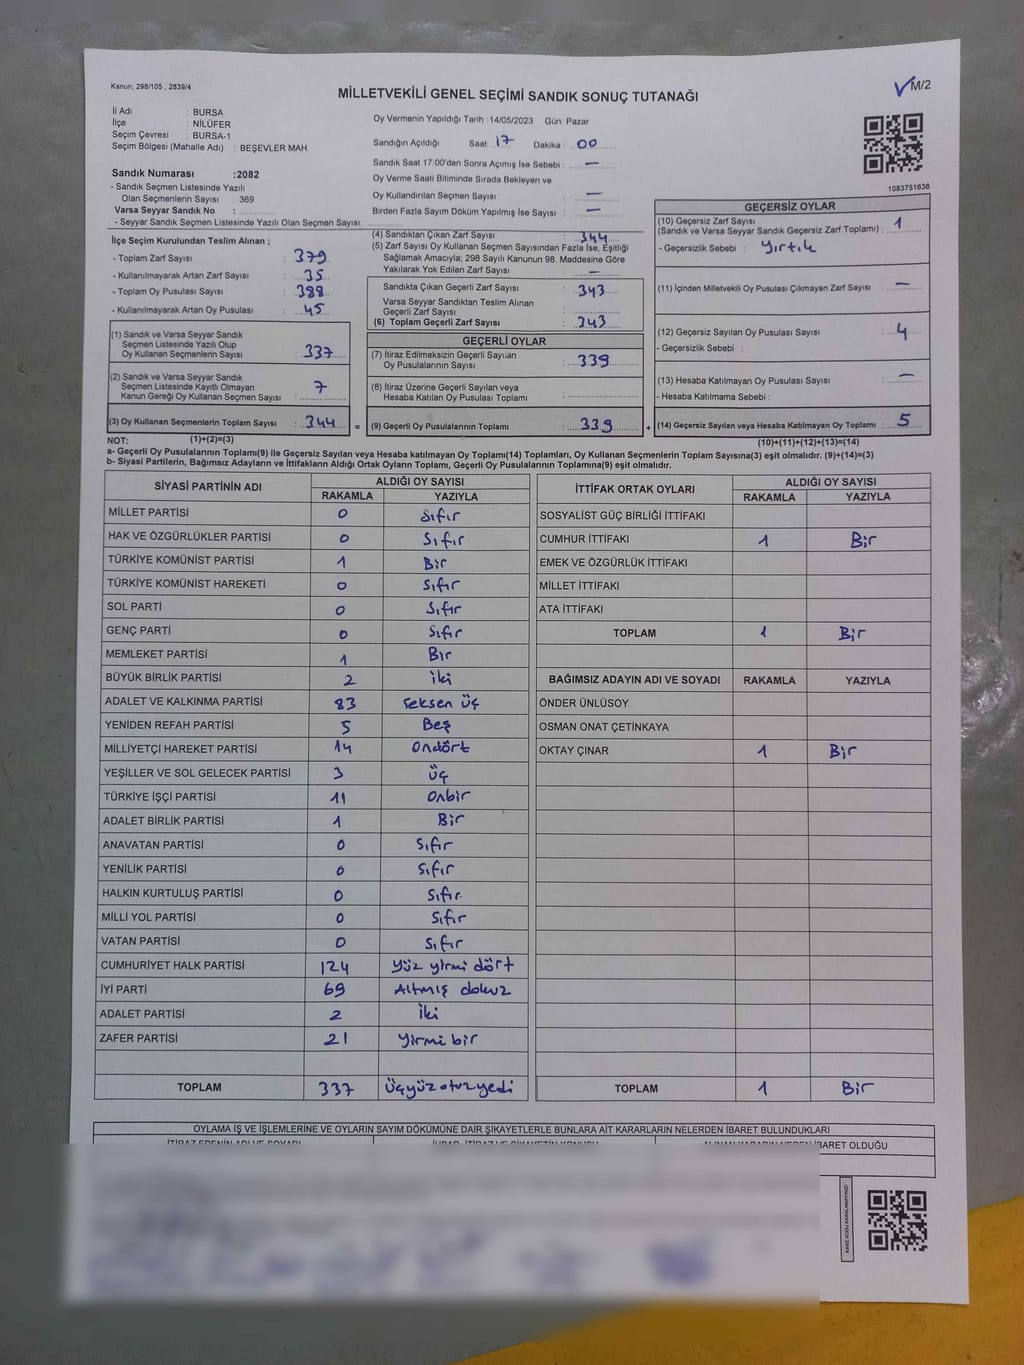 Kanun, 298/105 , 2839/4
MİLLETVEKİLİ GENEL SEÇİMİ SANDIK SONUÇ TUTANAĞI
M/2
İl Adı : BURSA
İlçe : NİLÜFER
Seçim Çevresi : BURSA-1
Seçim Bölgesi (Mahalle Adı) : BEŞEVLER MAH.
Sandık Numarası :2082
- Sandık Seçmen Listesinde Yazılı
Olan Seçmenlerin Sayısı : 369
Varsa Seyyar Sandık No :
- Seyyar Sandık Seçmen Listesinde Yazılı Olan Seçmen Sayısı:
Oy Vermenin Yapıldığı Tarih : 14/05/2023 Gün: Pazar
Sandığın Açıldığı Saat: 17 Dakika : 00
Sandık Saat 17.00'den Sonra Açımış İse Sebebi : —
Oy Verme Saati Bitiminde Sırada Bekleyen ve
Oy Kullandırılan Seçmen Sayısı : —
Birden Fazla Sayım Döküm Yapılmış İse Sayısı : —
1083751636
İlçe Seçim Kurulundan Teslim Alınan ;
- Toplam Zarf Sayısı : 379
- Kullanılmayarak Artan Zarf Sayısı : 35
- Toplam Oy Pusulası Sayısı : 388
- Kullanılmayarak Artan Oy Pusulası : 45
(1) Sandık ve Varsa Seyyar Sandık
Seçmen Listesinde Yazılı Olup
Oy Kullanan Seçmenlerin Sayısı : 337
(2) Sandık ve Varsa Seyyar Sandık
Seçmen Listesinde Kayıtlı Olmayan
Kanun Gereği Oy Kullanan Seçmen Sayısı : 7
(3) Oy Kullanan Seçmenlerin Toplam Sayısı : 344 =
(4) Sandıktan Çıkan Zarf Sayısı : 344
(5) Zarf Sayısı Oy Kullanan Seçmen Sayısından Fazla İse, Eşitliği
Sağlamak Amacıyla; 298 Sayılı Kanunun 98. Maddesine Göre
Yakılarak Yok Edilen Zarf Sayısı : —
Sandıkta Çıkan Geçerli Zarf Sayısı : 343
Varsa Seyyar Sandıktan Teslim Alınan
Geçerli Zarf Sayısı :
(6) Toplam Geçerli Zarf Sayısı : 343
GEÇERLİ OYLAR
(7) İtiraz Edilmeksizin Geçerli Sayılan
Oy Pusulalarının Sayısı : 339
(8) İtiraz Üzerine Geçerli Sayılan veya
Hesaba Katılan Oy Pusulası Toplamı :
(9) Geçerli Oy Pusulalarının Toplamı : 339 +
GEÇERSİZ OYLAR
(10) Geçersiz Zarf Sayısı
(Sandık ve Varsa Seyyar Sandık Geçersiz Zarf Toplamı) : 1
- Geçersizlik Sebebi : Yırtık
(11) İçinden Milletvekili Oy Pusulası Çıkmayan Zarf Sayısı : —
(12) Geçersiz Sayılan Oy Pusulası Sayısı : 4
- Geçersizlik Sebebi :
(13) Hesaba Katılmayan Oy Pusulası Sayısı : —
- Hesaba Katılmama Sebebi :
(14) Geçersiz Sayılan veya Hesaba Katılmayan Oy Toplamı : 5
NOT: (1)+(2)=(3) (10)+(11)+(12)+(13)=(14)
a- Geçerli Oy Pusulalarının Toplamı(9) ile Geçersiz Sayılan veya Hesaba Katılmayan Oy Toplamı(14) Toplamları, Oy Kullanan Seçmenlerin Toplam Sayısına(3) eşit olmalıdır. (9)+(14)=(3)
b- Siyasi Partilerin, Bağımsız Adayların ve İttifakların Aldığı Ortak Oyların Toplamı, Geçerli Oy Pusulalarının Toplamına(9) eşit olmalıdır.
SİYASİ PARTİNİN ADI ALDIĞI OY SAYISI
RAKAMLA YAZIYLA
MİLLET PARTİSİ 0 Sıfır
HAK VE ÖZGÜRLÜKLER PARTİSİ 0 Sıfır
TÜRKİYE KOMÜNİST PARTİSİ 1 Bir
TÜRKİYE KOMÜNİST HAREKETİ 0 Sıfır
SOL PARTİ 0 Sıfır
GENÇ PARTİ 0 Sıfır
MEMLEKET PARTİSİ 1 Bir
BÜYÜK BİRLİK PARTİSİ 2 İki
ADALET VE KALKINMA PARTİSİ 83 Seksen Üç
YENİDEN REFAH PARTİSİ 5 Beş
MİLLİYETÇİ HAREKET PARTİSİ 14 Ondört
YEŞİLLER VE SOL GELECEK PARTİSİ 3 Üç
TÜRKİYE İŞÇİ PARTİSİ 11 Onbir
ADALET BİRLİK PARTİSİ 1 Bir
ANAVATAN PARTİSİ 0 Sıfır
YENİLİK PARTİSİ 0 Sıfır
HALKIN KURTULUŞ PARTİSİ 0 Sıfır
MİLLİ YOL PARTİSİ 0 Sıfır
VATAN PARTİSİ 0 Sıfır
CUMHURİYET HALK PARTİSİ 124 Yüz yirmi dört
İYİ PARTİ 69 Altmış dokuz
ADALET PARTİSİ 2 İki
ZAFER PARTİSİ 21 Yirmi bir
TOPLAM 337 Üçyüz otuz yedi
İTTİFAK ORTAK OYLARI ALDIĞI OY SAYISI
RAKAMLA YAZIYLA
SOSYALİST GÜÇ BİRLİĞİ İTTİFAKI
CUMHUR İTTİFAKI 1 Bir
EMEK VE ÖZGÜRLÜK İTTİFAKI
MİLLET İTTİFAKI
ATA İTTİFAKI
TOPLAM 1 Bir
BAĞIMSIZ ADAYIN ADI VE SOYADI RAKAMLA YAZIYLA
ÖNDER ÜNLÜSOY
OSMAN ONAT ÇETİNKAYA
OKTAY ÇINAR 1 Bir
TOPLAM 1 Bir
OYLAMA İŞ VE İŞLEMLERİNE VE OYLARIN SAYIM DÖKÜMÜNE DAİR ŞİKAYETLERLE BUNLARA AİT KARARLARIN NELERDEN İBARET BULUNDUKLARI
İTİRAZ EDENİN ADI VE SOYADI
İBARET OLDUĞU
KARE KODU KARALAMAYINIZ!